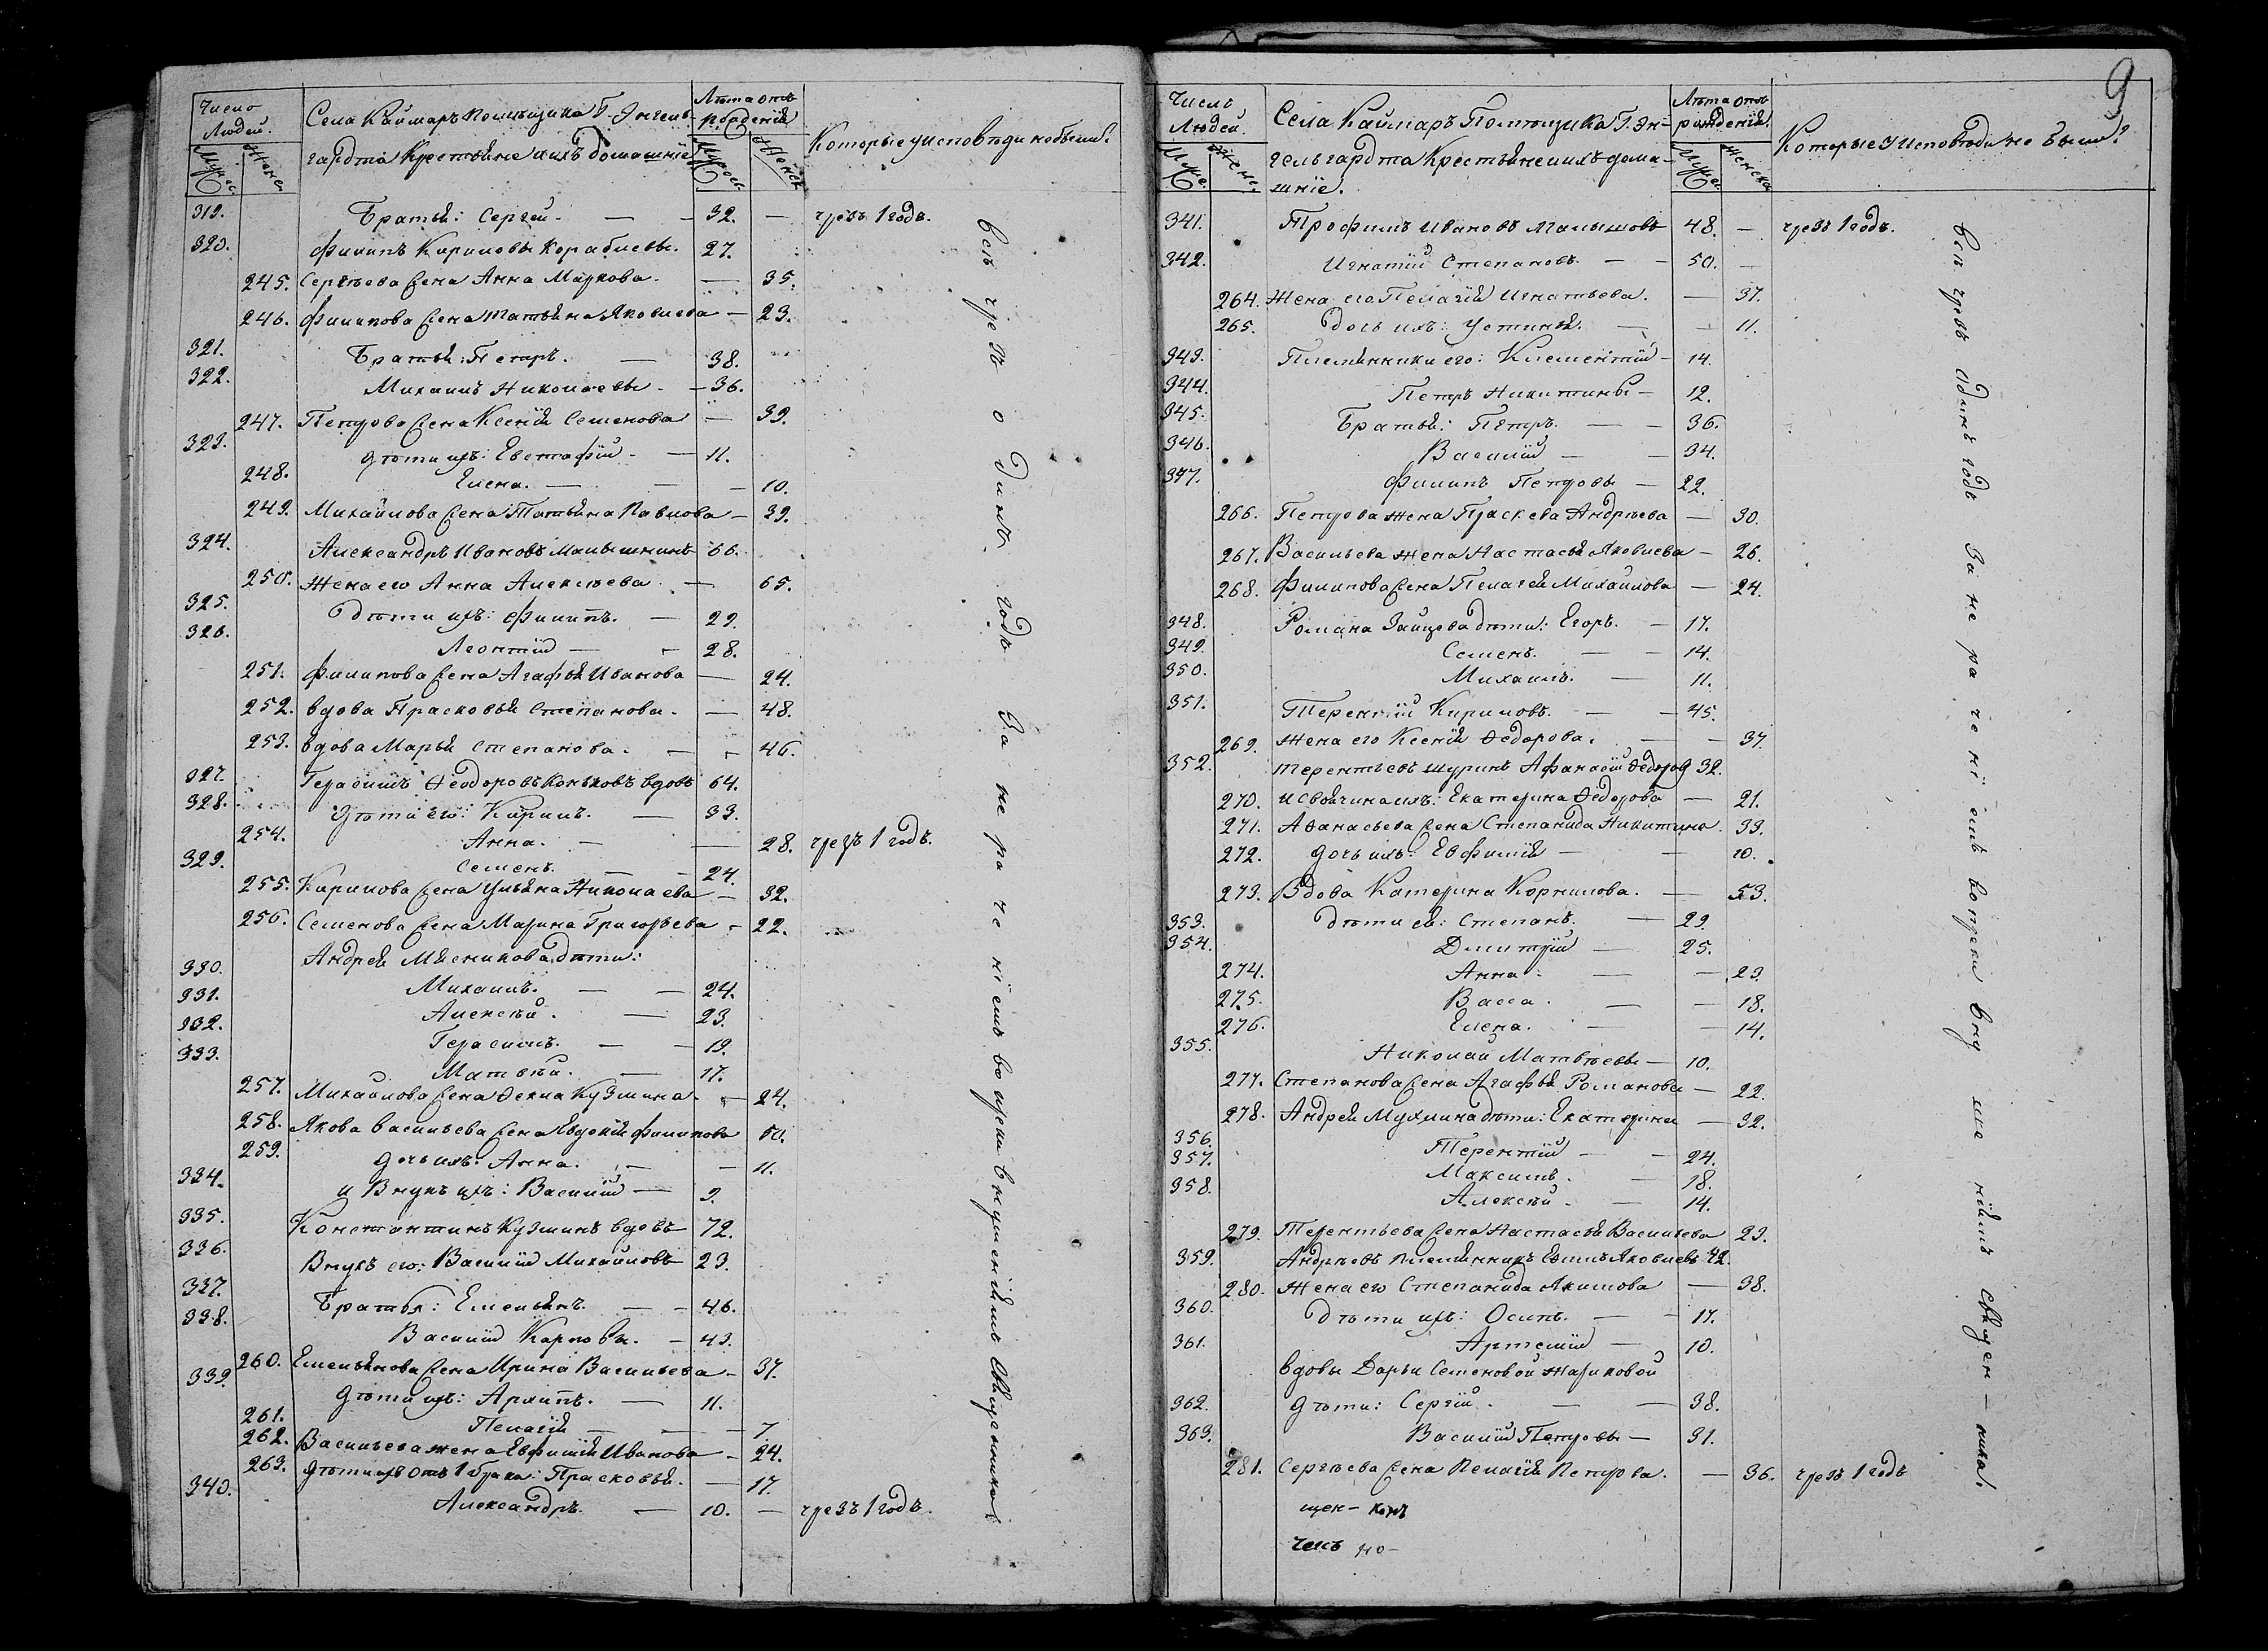 Число Людей.
Муж. Жен.
Села Каймаръ Помѣщика Г. Энгель-
гардта Крестьяне и ихъ домашніе
Лѣта отъ рожденія
Мужск. Женск.
Которые у исповѣди не были?
319. Братья: Сергей. — 32. — чрезъ 1 годъ.
320. Филипъ Кириловы Кораблевы. 27.
245. Сергѣева жена Анна Маркова. — 35.
246. Филипова жена Татьяна Яковлева — 23.
321. Братья: Петръ. — 38.
322. Михаилъ Николаевы — 36.
247. Петрова жена Ксенія Семенова — 39.
323. Дѣти ихъ: Евстафій — 11.
248. Елена. — 10.
249. Михайлова жена Татьяна Павлова — 39.
324. Александръ Ивановъ Малышкинъ 66.
250. Жена его Анна Алексѣева. — 65.
325. Дѣти ихъ: Филиппъ. — 29.
326. Леонтій — 28.
251. Филипова жена Агафья Иванова — 24.
252. Вдова Прасковья Степанова. — 48.
253. Вдова Марья Степанова. — 46.
327. Герасимъ Ѳеодоровъ Коньковъ вдовъ 64.
328. Дѣти его: Кирилъ. — 33.
254. Анна. — 28. чрезъ 1 годъ.
329. Семенъ. — 24.
255. Кирилова жена Ульяна Николаева — 32.
256. Семенова жена Марина Григорьева — 22.
Андрея Мясникова дѣти:
330. Михаилъ. — 24.
331. Алексѣй. — 23.
332. Герасимъ. — 19.
333. Матвѣй. — 17.
257. Михайлова жена Ѳекла Кузмина. — 24.
258. Якова Васильева жена Евдокія Филипова 50.
259. Дочь ихъ: Анна. — 11.
334. и Внукъ ихъ: Василій — 9.
335. Константинъ Кузминъ вдовъ 72.
336. Внукъ его: Василій Михайловъ 23.
337. Братья: Емельянъ. — 46.
338. Василій Карповы. — 43.
260. Емельянова жена Ирина Васильева — 37.
339. Дѣти ихъ: Архипъ. — 11.
261. Пелагія — 7
262. Васильева жена Евфимія Иванова — 24.
263. Дѣти ихъ отъ 1 брака: Прасковья. — 17.
340. Александръ. — 10. — чрезъ 1 годъ.
всѣ чрезъ одинъ годъ За нераченіемъ вопреки внушеніямъ Священника
9
Число Людей.
Муж. Жен.
Села Каймаръ Помѣщика Г. Эн-
гельгардта Крестьяне и ихъ дома-
шніе.
Лѣта отъ рожденія.
Мужс. Женска
Которые у исповѣди не были?
341. Трофимъ Ивановъ Малышовъ 48. — чрезъ 1 годъ.
342. Игнатій Степановъ. — 50. —
264. Жена его Пелагія Игнатьева. — 37.
265. Дочь ихъ: Устинья. — 11.
343. Племянники его: Клементій — 14.
344. Петръ Никитины — 12.
345. Братья: Петръ. — 36.
346. Василій — 34.
347. Филипъ Петровы — 22.
266. Петрова жена Праскева Андрѣева — 30.
267. Васильева жена Настасья Яковлева — 26.
268. Филипова жена Пелагея Михайлова — 24.
348. Романа Зайцева дѣти: Егоръ. — 17.
349. Семенъ. — 14.
350. Михаилъ. — 11.
351. Терентій Кириловъ. — 45.
269. Жена его Ксенія Ѳедорова. — 37.
352. Терентьевъ шуринъ Афанасій Ѳедоров 32.
270. и свойчина ихъ: Екатерина Ѳедорова — 21.
271. Аѳанасьева жена Степанида Никитина. 33.
272. Дочь ихъ: Евфимія — 10.
273. Вдова Катерина Корнилова. — 53.
353. Дѣти ея: Степанъ. — 29.
354. Дмитрій — 25.
274. Анна. — 23.
275. Васса. — 18.
276. Елена. — 14.
355. Николай Матвѣевы — 10.
277. Степанова жена Агафья Романова — 22.
278. Андрея Мухина дѣти: Екатерина — 32.
356. Терентій — 24.
357. Максимъ. — 18.
358. Алексѣй — 14.
279. Терентьева жена Настасья Васильева 23.
359. Андрѣевъ племянникъ Ефимъ Яковлевъ 42.
280. Жена его Степанида Акимова — 38.
360. Дѣти ихъ: Осипъ. — 17.
361. Артемій — 10.
Вдовы Дарьи Семеновой Жариковой
362. Дѣти: Сергій. — 38.
363. Василій Петровы — 31.
281. Сергѣева жена Пелагія Петрова. — 36. чрезъ 1 годъ
всѣ чрезъ одинъ годъ За нераченіемъ вопреки внушеніямъ священ—ника.